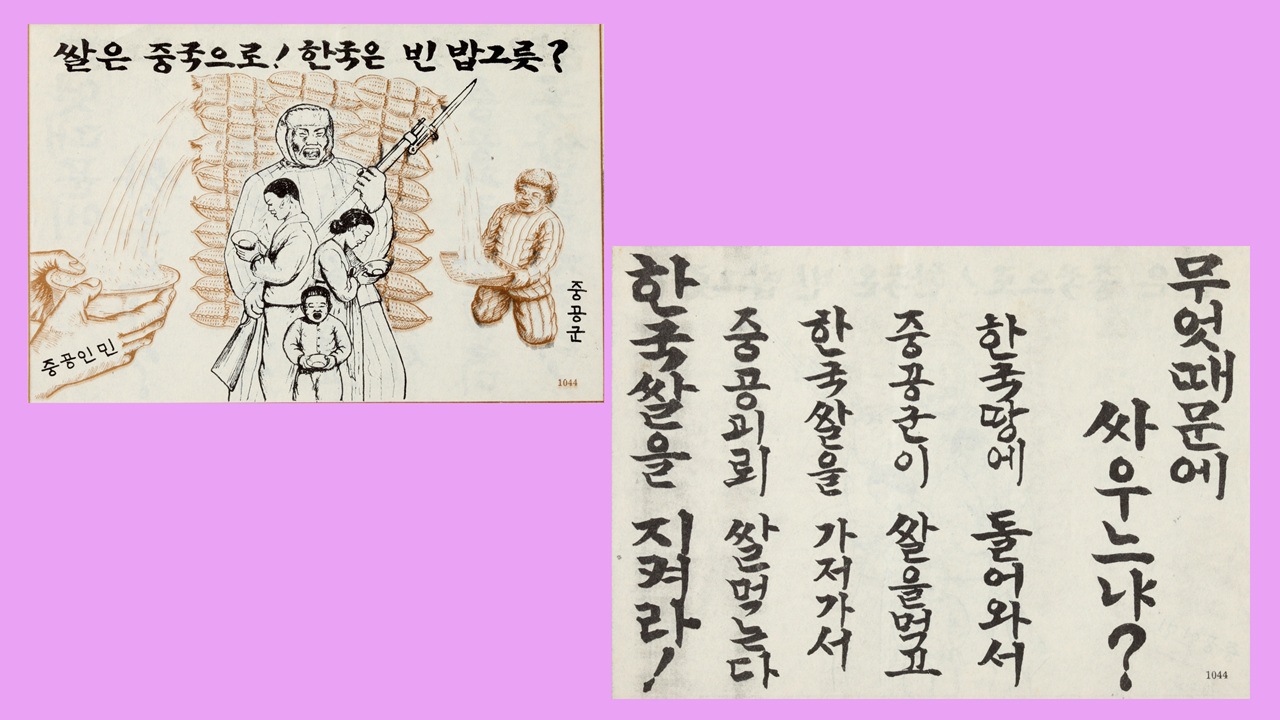 쌀은 중국으로! 한국은 빈 밥그릇?
중공인민
중공군
1044
무엇때문에
싸우느냐?
한국땅에 둘어와서
중공군이 쌀을먹고
한국쌀을 가저가서
중공괴뢰 쌀먹는다
한국쌀을 지켜라!
1044